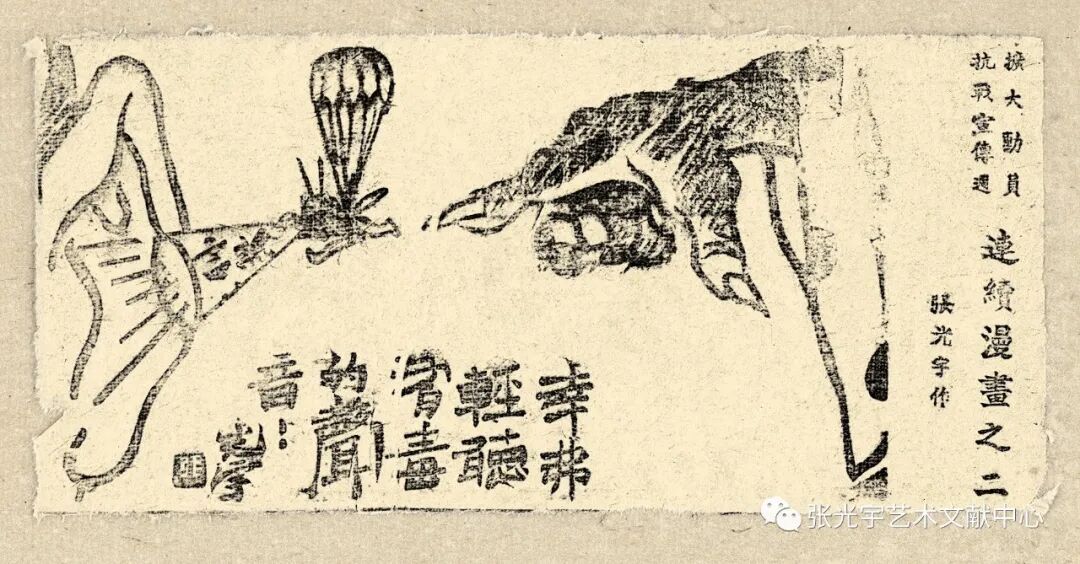 擴大動員
抗戰宣傳週
連續漫畫之二
張光宇作
幸弗
輕聽
有毒
的聲
音
光宇
张光宇艺术文献中心